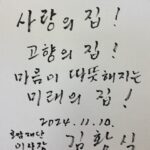 사랑의 집!
고향의 집!
마음이 따뜻해지는
미래의 집!
2024. 11. 10.
호암재단
이사장 김황식